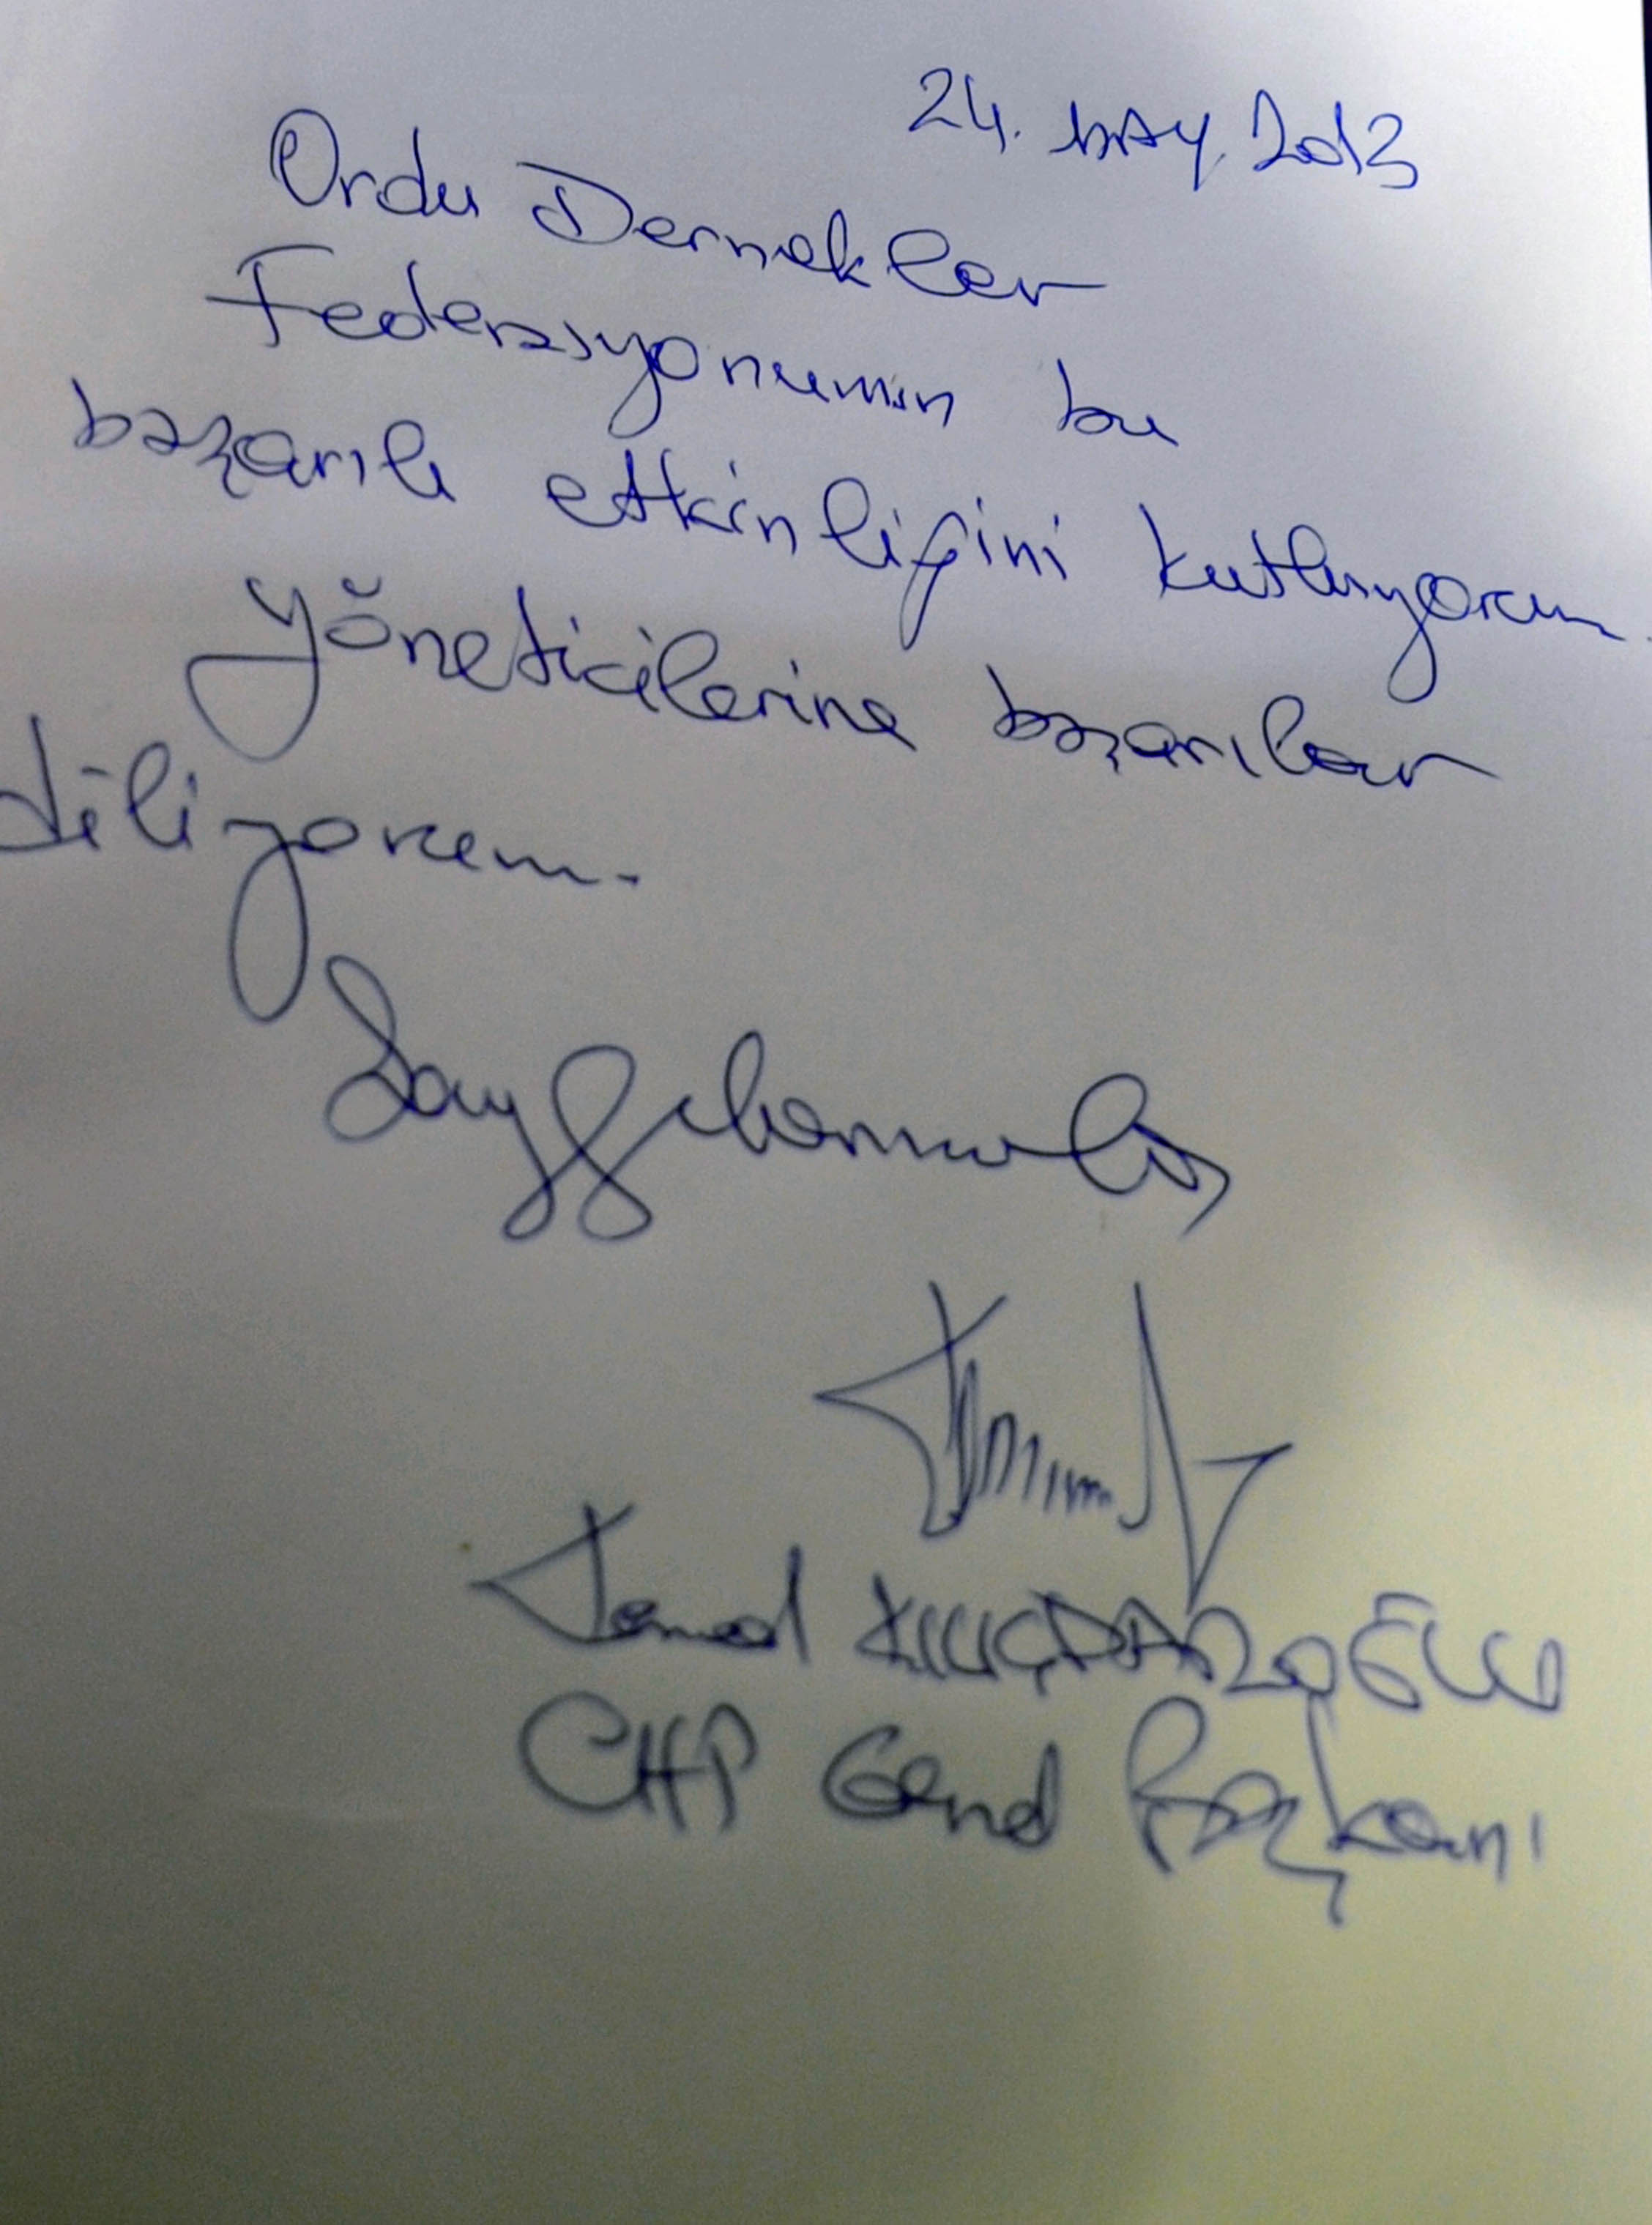 24. MAY. 2013
Ordu Dernekler
Federasyonumun bu
başarılı etkinliğini kutluyorum.
Yöneticilerine başarılar
diliyorum.
Saygılarımla,
Kemal KILIÇDAROĞLU
CHP Genel Başkanı